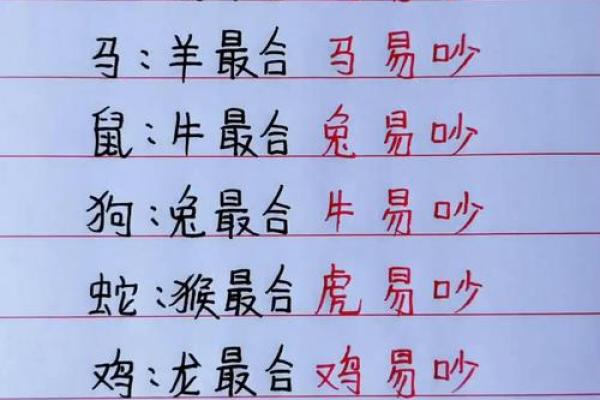 马:羊最合 马易吵
鼠:牛最合 兔易吵
狗:兔最合 牛易吵
蛇:猴最合 虎易吵
鸡:龙最合 鸡易吵